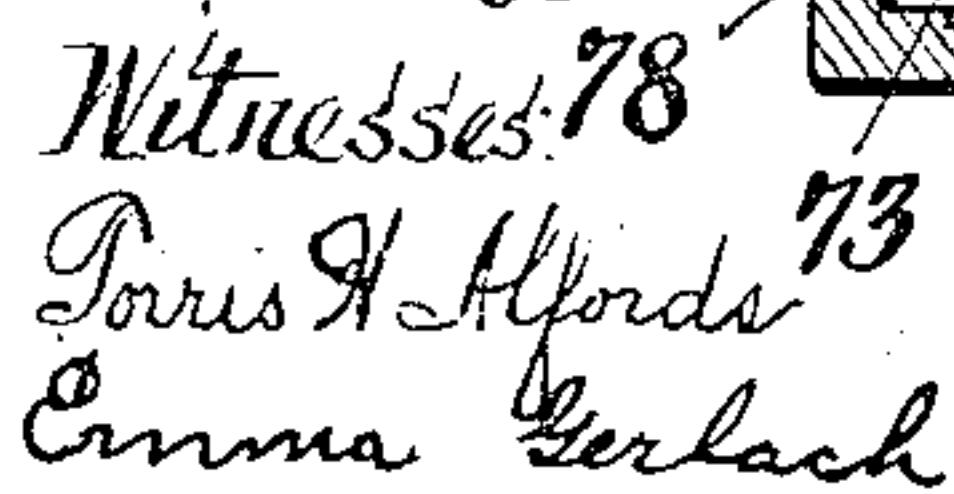 Witnesses: 78
73
Torris H Alfords
Emma Gerlach